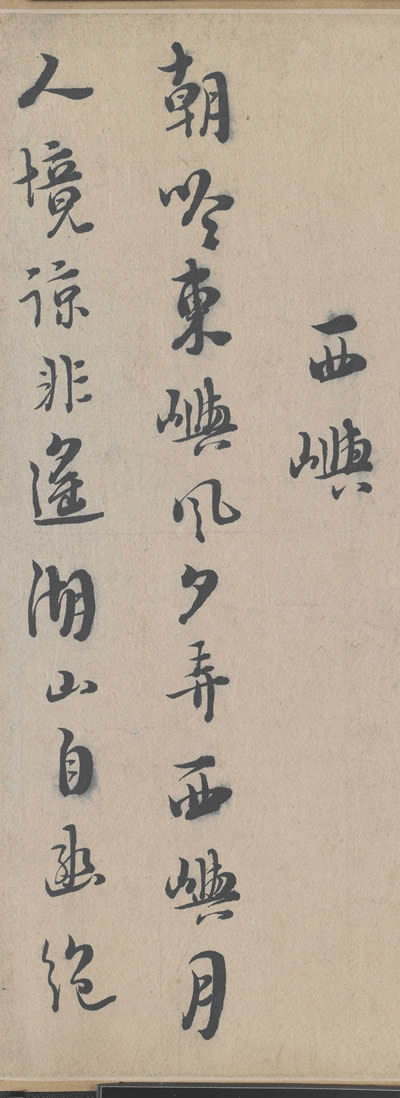 西嶼
朝吟東嶼風夕弄西嶼月
人境諒非遙湖山自幽絕